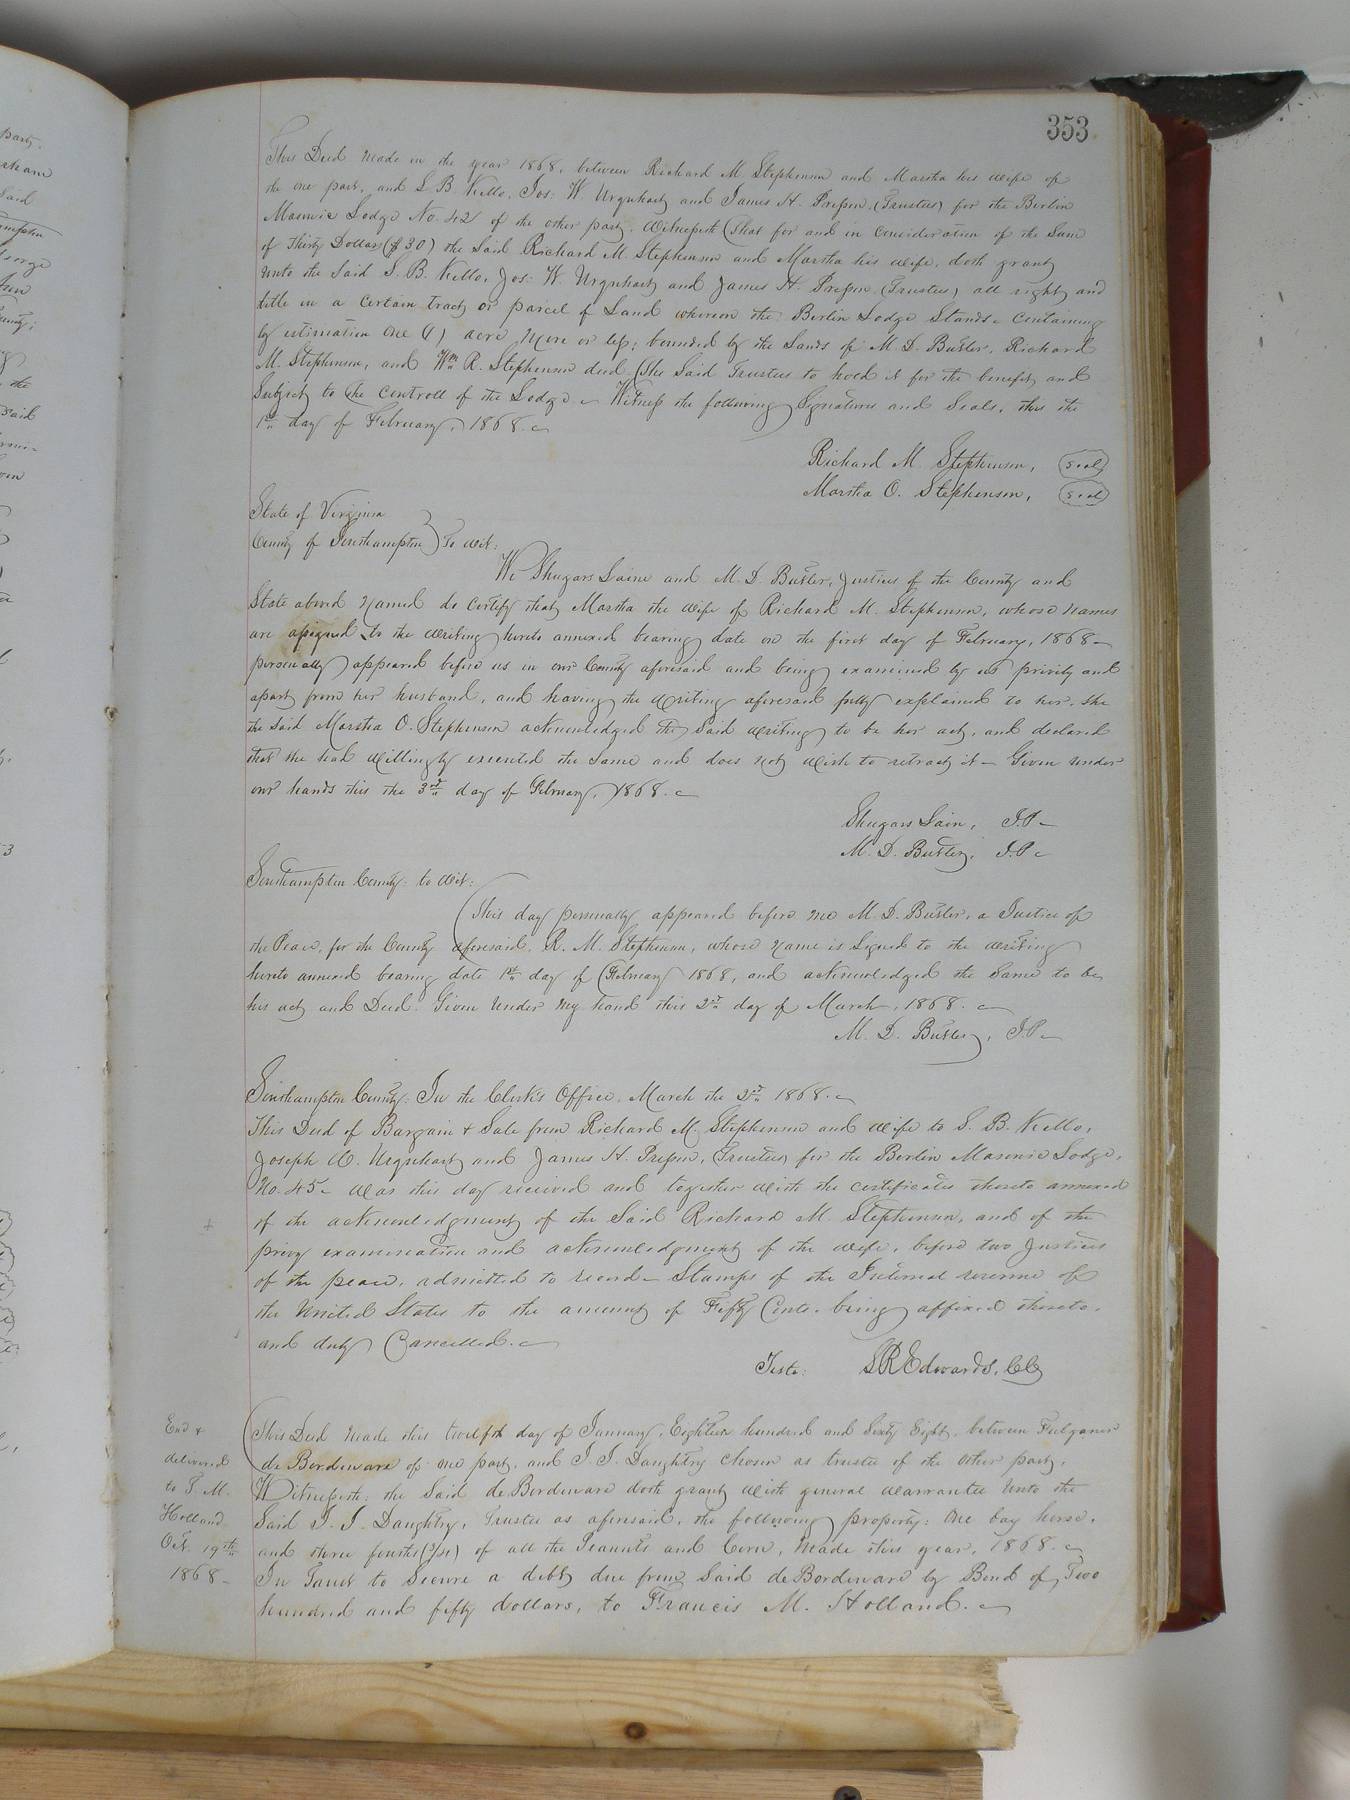 353
This Deed made in the year 1868, between Richard M Stephenson and Martha his wife of
the one part, and S B Kello, Jos: W. Urquhart and James H. Presson (Trustees) for the Berlin
Masonic Lodge No. 42 of the other party. Witnesseth (That for and in consideration of the Sum
of Thirty Dollars ($30) the Said Richard M. Stephenson and Martha his wife, doth grant
unto the Said S. B. Kello, Jos: W. Urquhart and James H. Presson (Trustees) all right and
title in a certain tract or parcel of Land whereon the Berlin Lodge Stands - containing
by estimation One (1) acre more or less; bounded by the Lands of M. D. Butler, Richard
M. Stephenson, and Wm R. Stephenson decd (The Said Trustees to hold it for the benefit and
Subject to the controll of the Lodge. - Witness the following Signatures and Seals, this the
1st day of February, 1868.
Richard M. Stephenson, Seal
Martha O. Stephenson, Seal
State of Virginia
County of Southampton To wit:
We Shugars Laine and M. D. Butler, Justices of the County and
State aboved named do certify that Martha the wife of Richard M. Stephenson, whose names
are assigned to the writing hereto annexed bearing date on the first day of February, 1868 -
personally appeared before us in our County aforesaid and being examined by us privily and
apart from her husband, and having the writing aforesaid fully explained to her, She
the Said Martha O. Stephenson acknowledged the Said writing to be her act, and declared
that she had willingly executed the Same and does not wish to retract it - Given under
our hands this the 3rd day of February, 1868. -
Shugars Lain, J.P. -
M. D. Butler, J.P. -
Southampton County to wit:
This day personally appeared before me M. D. Butler, a Justice of
the Peace, for the County aforesaid, R. M. Stephenson, whose name is Signed to the writing
hereto annexed bearing date 1st day of February 1868, and acknowledged the Same to be
his act and Deed. Given under my hand this 2nd day of March, 1868. -
M. D. Butler, J.P. -
Southampton County: In the Clerk's Office, March the 2nd 1868. -
This Deed of Bargain & Sale from Richard M. Stephenson and wife to S. B. Kello,
Joseph W. Urquhart and James H. Presson, (Trustees) for the Berlin Masonic Lodge,
No. 45 - was this day received and together with the certificates thereto annexed
of the acknowledgment of the Said Richard M. Stephenson, and of the
privy examination and acknowledgment of the wife, before two Justices
of the peace, admitted to record - Stamps of the Internal revenue of
the United States to the amount of Fifty Cents being affixed thereto,
and duly Cancelled. -
Teste: L R Edwards, CC
End &
delivered
to F. M.
Holland
Oct. 19th
1868 -
This Deed made this twelfth day of January, Eighteen hundred and Sixty Eight, between
de Bordeware of one part, and J. J. Daughtry chosen as trustee of the other part,
Witnesseth: the Said de Bordeware doth grant with general warrantee unto the
Said J. J. Daughtry, Trustee as aforesaid, the following property: One bay horse,
and three fourths (3/4) of all the Peanuts and Corn, made this year, 1868. -
In Trust to Secure a debt due from Said de Bordeware by Bond of, Two
hundred and fifty dollars, to Francis M. Holland. -